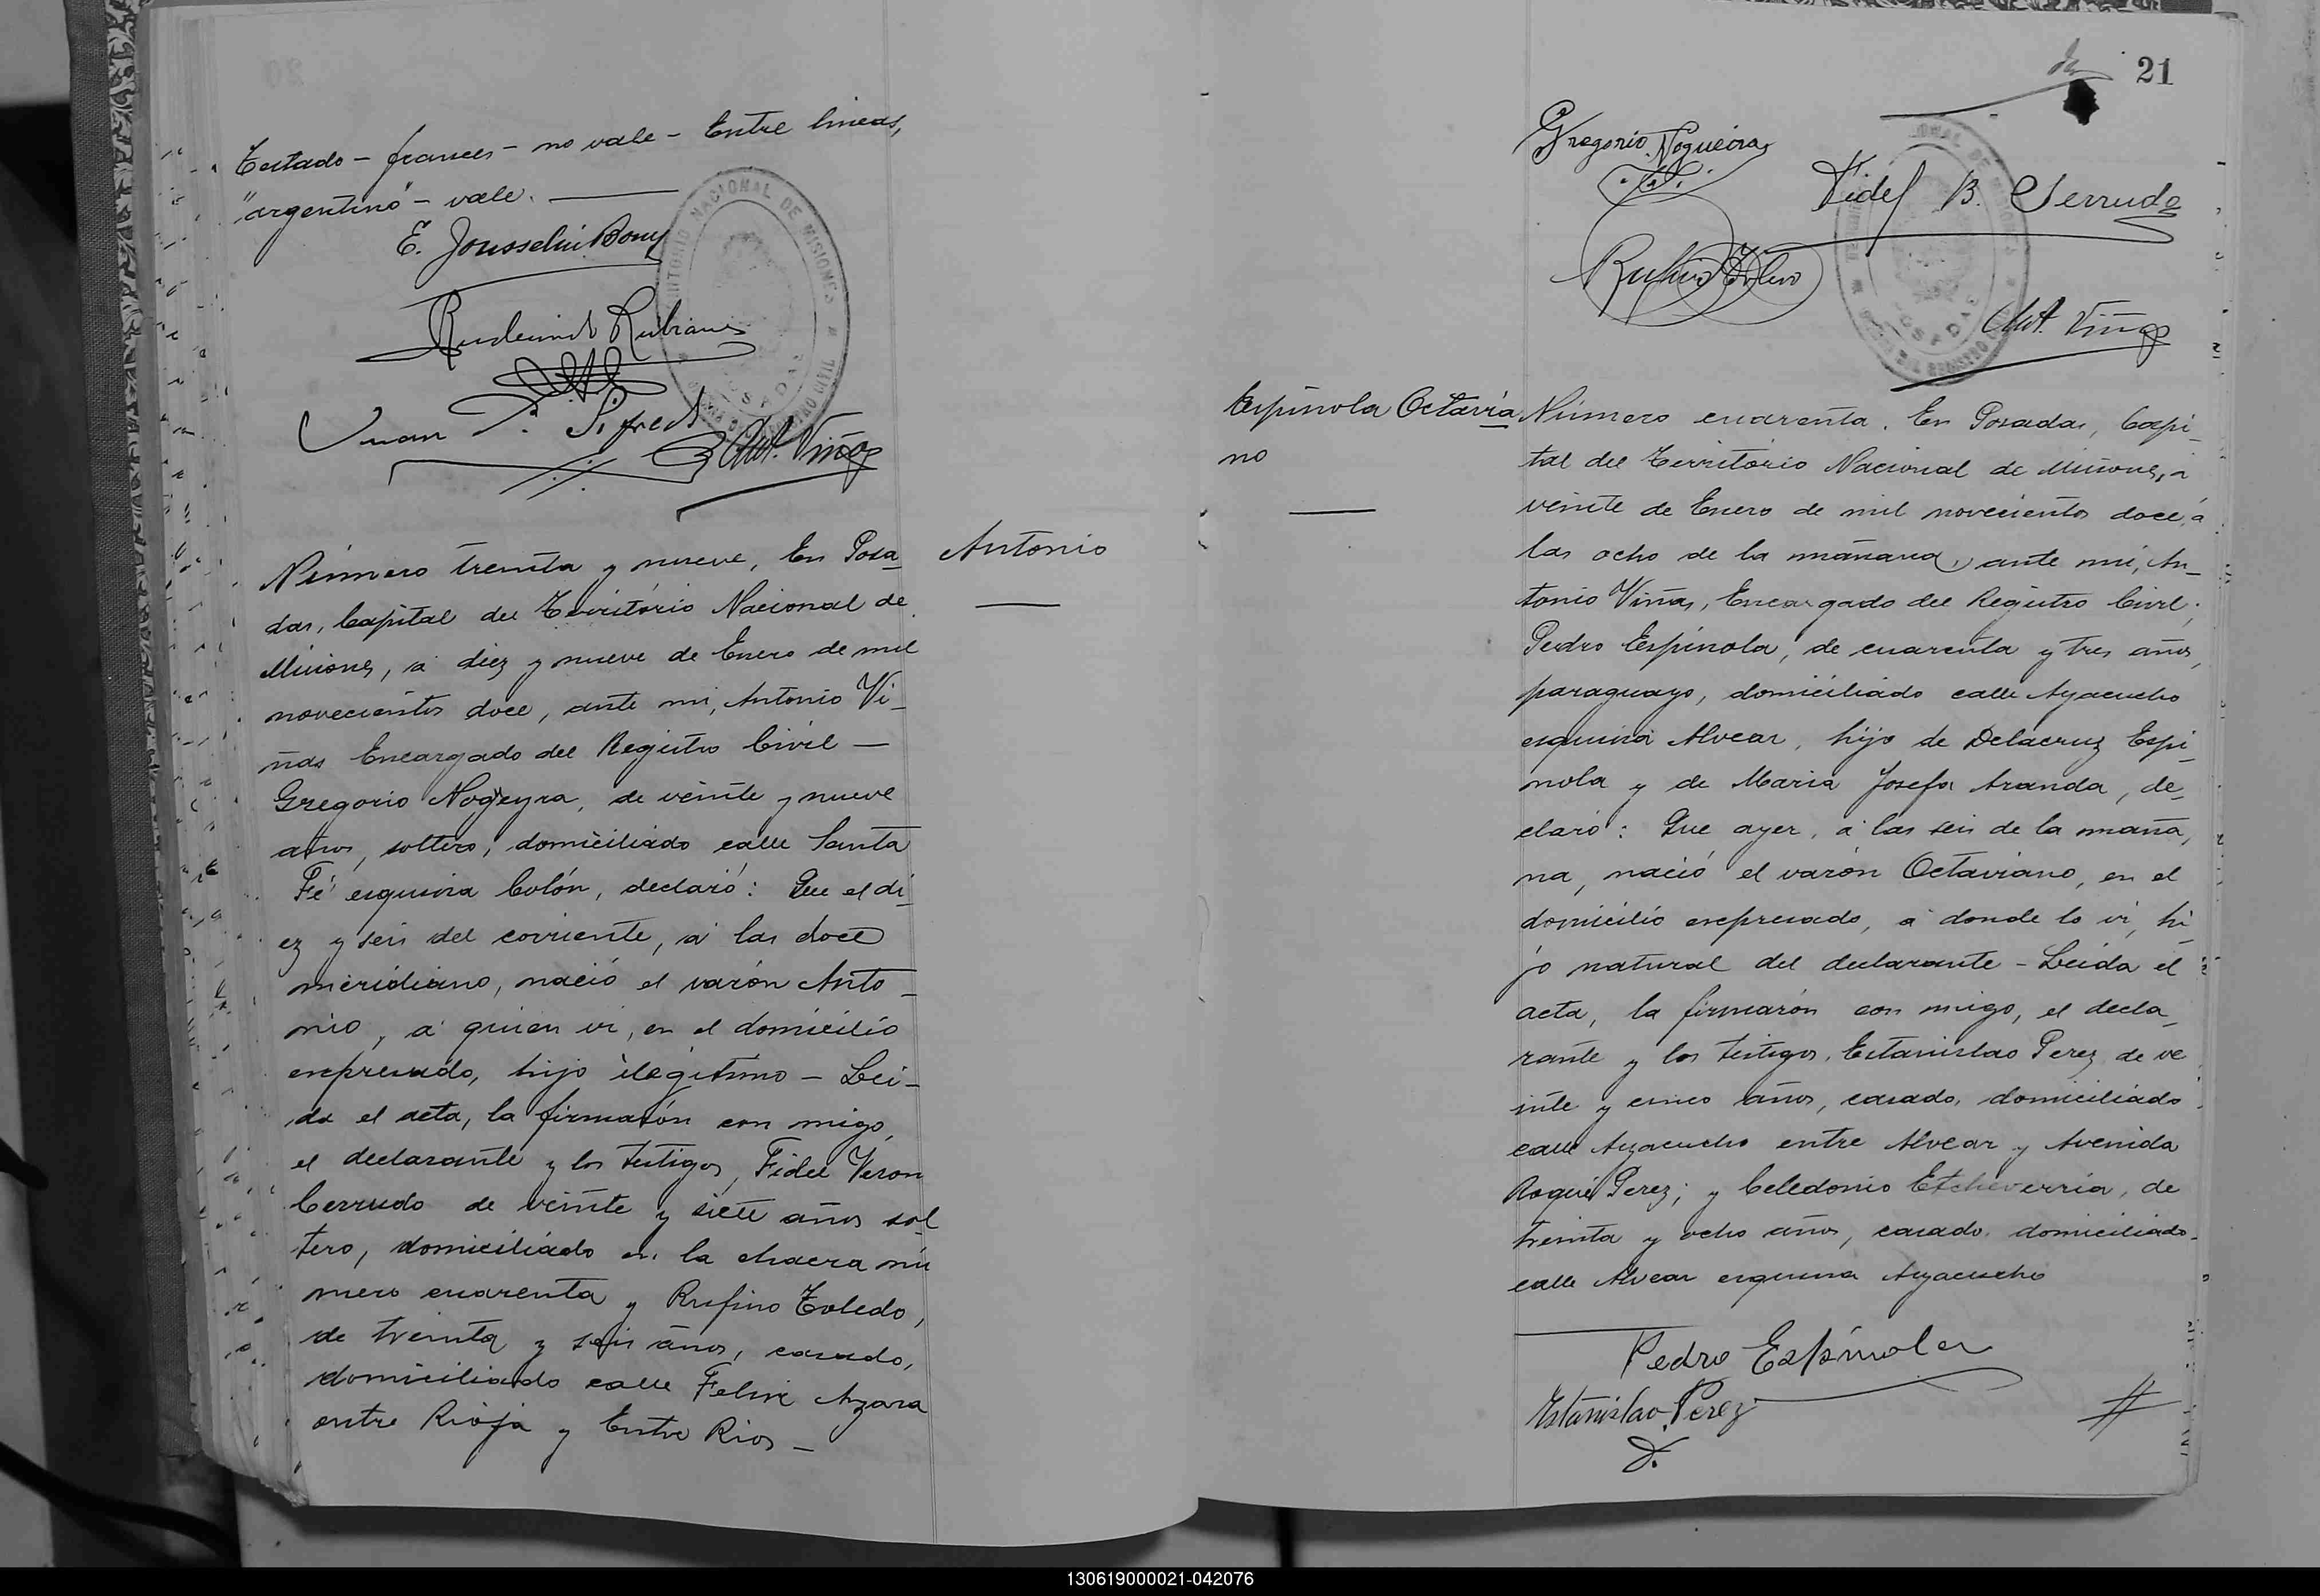 Testado - frances - no vale - Entre lineas,
"argentino" - vale.
E. Jousselin Bony
Rudecindo Rubianes
Juan P. Sifredi
Ant. Viñas
TERRITORIO NACIONAL DE MISIONES
POSADAS
Número treinta y nueve, En Posa-
das, Capital del Território Nacional de
Misiones, á diez y nueve de Enero de mil
novecientos doce, ante mi, Antonio Vi-
ñas Encargado del Registro Civil -
Gregorio Nogeyra, de veinte y nueve
años, soltero, domiciliado calle Santa
Fé esquina Colón, declaró: Que el di-
ez y seis del corriente, á las doce
meridiano, nació el varón Anto-
nio, á quien vi, en el domicilio
expresado, hijo ilegítimo - Lei-
da el acta, la firmarón con migo,
el declarante y los testigos, Fidel Veron
Cerrudo de veinte y siete años sol
tero, domiciliado en la chacra nú
mero cuarenta y Rufino Toledo,
de treinta y seis años, casado,
domiciliado calle Felix Azara
entre Rioja y Entre Rios -
Antonio
21
Gregorio Nogueira
Fidel B. Serrudo
Rufino Toledo
Ant. Viñas
Espínola Octavia
no
Número cuarenta. En Posadas, Capi-
tal del Território Nacional de Misiones, á
veinte de Enero de mil novecientos doce, á
las ocho de la mañana, ante mi, An-
tonio Viñas, Encargado del Registro Civil,
Pedro Espínola, de cuarenta y tres años,
paraguayo, domiciliado calle Ayacucho
esquina Alvear, hijo de Delacruz Espi-
nola y de Maria Josefa Aranda, de-
claró: Que ayer, á las seis de la maña-
na, nació el varón Octaviano, en el
domicilio expresado, á donde lo vi, hi-
jo natural del declarante - Leida el
acta, la firmarón con migo, el decla-
rante y los testigos, Estanislao Perez de ve
inte y cinco años, casado, domiciliado
calle Ayacucho entre Alvear y Avenida
Roque Perez; y Celedonio Etcheverria, de
treinta y ocho años, casado, domiciliado
calle Alvear esquina Ayacucho
Pedro Espínola
Estanislao Perez
130619000021-042076